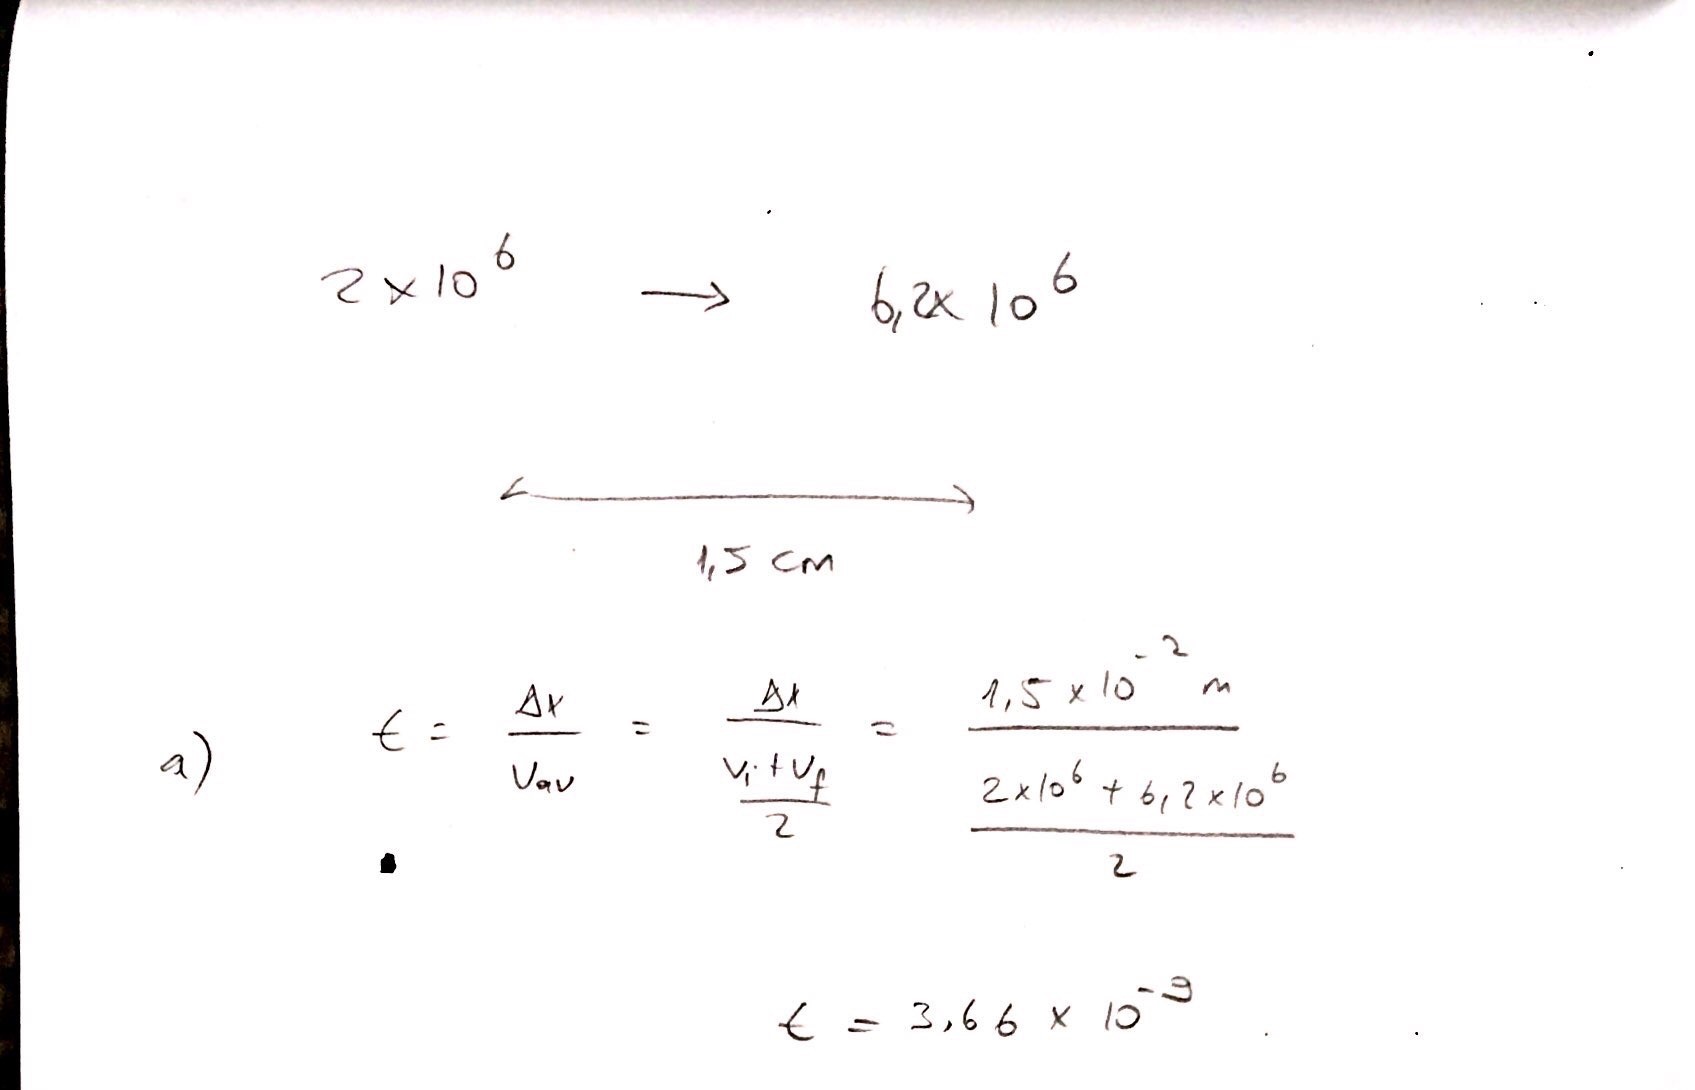 2 x 10⁶ → 6,2x 10⁶
1,5 cm
a) t = Δx / Vav = Δx / ((Vi + Vf) / 2) = 1,5 x 10⁻² m / ((2x10⁶ + 6,2x10⁶) / 2)
t = 3,66 x 10⁻⁹